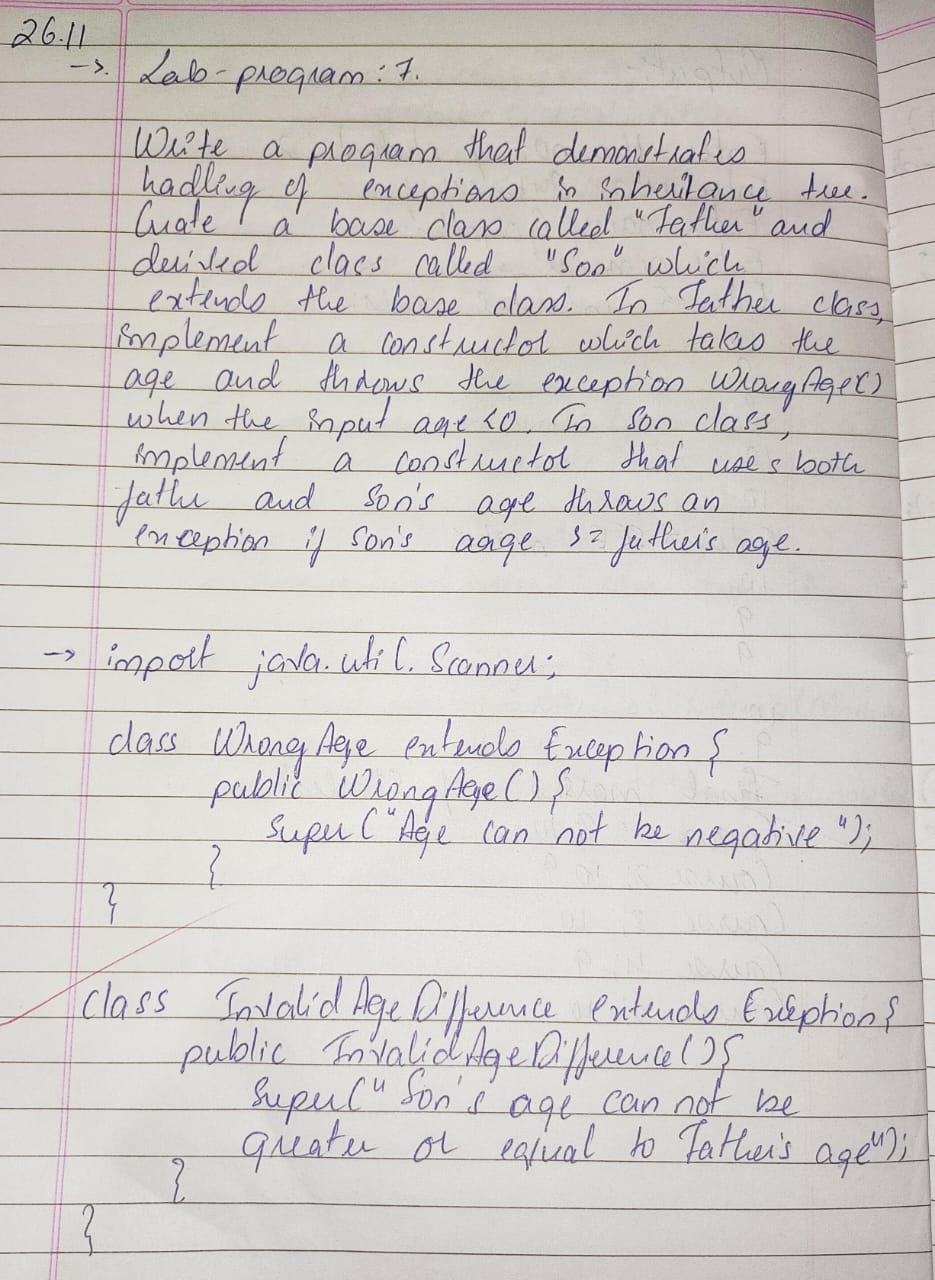 26.11
→. Lab-program: 7.
Write a program that demonstrates
hadling of exceptions in inheritance tree.
Create a base class called "Father" and
derived class called "Son" which
extends the base class. In Father class,
implement a constructor which takes the
age and throws the exception WrongAge()
when the input age <0. In Son class,
implement a constructor that uses both
father and son's age throws an
exception if son's aage >= father's age.
→ import java.util.Scanner;
class WrongAge extends Exception {
public WrongAge() {
super ("Age can not be negative");
}
}
class InvalidAgeDifference extends Exception {
public InvalidAgeDifference() {
super (" Son's age can not be
greater or equal to Father's age");
}
}